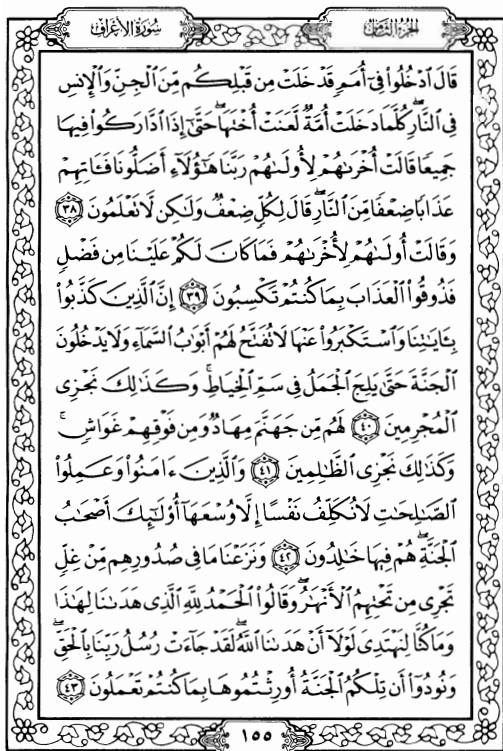 سُورَةُ الأَعْرَافِ الجُزْءُ الثَّامِنُ
قَالَ ٱدْخُلُوا۟ فِىٓ أُمَمٍ قَدْ خَلَتْ مِن قَبْلِكُم مِّنَ ٱلْجِنِّ وَٱلْإِنسِ
فِى ٱلنَّارِ ۖ كُلَّمَا دَخَلَتْ أُمَّةٌ لَّعَنَتْ أُخْتَهَا ۖ حَتَّىٰٓ إِذَا ٱدَّارَكُوا۟ فِيهَا
جَمِيعًا قَالَتْ أُخْرَىٰهُمْ لِأُولَىٰهُمْ رَبَّنَا هَـٰٓؤُلَآءِ أَضَلُّونَا فَـَٔاتِهِمْ
عَذَابًا ضِعْفًا مِّنَ ٱلنَّارِ ۖ قَالَ لِكُلٍّ ضِعْفٌ وَلَـٰكِن لَّا تَعْلَمُونَ ٣٨
وَقَالَتْ أُولَىٰهُمْ لِأُخْرَىٰهُمْ فَمَا كَانَ لَكُمْ عَلَيْنَا مِن فَضْلٍ
فَذُوقُوا۟ ٱلْعَذَابَ بِمَا كُنتُمْ تَكْسِبُونَ ٣٩ إِنَّ ٱلَّذِينَ كَذَّبُوا۟
بِـَٔايَـٰتِنَا وَٱسْتَكْبَرُوا۟ عَنْهَا لَا تُفَتَّحُ لَهُمْ أَبْوَٰبُ ٱلسَّمَآءِ وَلَا يَدْخُلُونَ
ٱلْجَنَّةَ حَتَّىٰ يَلِجَ ٱلْجَمَلُ فِى سَمِّ ٱلْخِيَاطِ ۚ وَكَذَٰلِكَ نَجْزِى
ٱلْمُجْرِمِينَ ٤٠ لَهُم مِّن جَهَنَّمَ مِهَادٌ وَمِن فَوْقِهِمْ غَوَاشٍ ۚ
وَكَذَٰلِكَ نَجْزِى ٱلظَّـٰلِمِينَ ٤١ وَٱلَّذِينَ ءَامَنُوا۟ وَعَمِلُوا۟
ٱلصَّـٰلِحَـٰتِ لَا نُكَلِّفُ نَفْسًا إِلَّا وُسْعَهَآ أُو۟لَـٰٓئِكَ أَصْحَـٰبُ
ٱلْجَنَّةِ ۖ هُمْ فِيهَا خَـٰلِدُونَ ٤٢ وَنَزَعْنَا مَا فِى صُدُورِهِم مِّنْ غِلٍّ
تَجْرِى مِن تَحْتِهِمُ ٱلْأَنْهَـٰرُ ۖ وَقَالُوا۟ ٱلْحَمْدُ لِلَّهِ ٱلَّذِى هَدَىٰنَا لِهَـٰذَا
وَمَا كُنَّا لِنَهْتَدِىَ لَوْلَآ أَنْ هَدَىٰنَا ٱللَّهُ ۖ لَقَدْ جَآءَتْ رُسُلُ رَبِّنَا بِٱلْحَقِّ ۖ
وَنُودُوٓا۟ أَن تِلْكُمُ ٱلْجَنَّةُ أُورِثْتُمُوهَا بِمَا كُنتُمْ تَعْمَلُونَ ٤٣
١٥٥